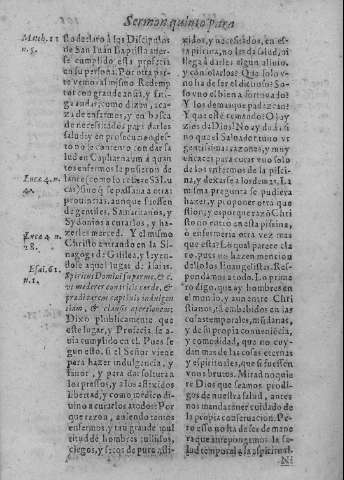 Sermon quinto para
Math. 11
n. 5.
Lucæ 4. n.
40.
Lucæ 4. n.
28.
Esai. 61.
n. 1.
lo declarò à los Discipulos
de San Iuan Baptista auer-
se cumplido esta profecia
en su persona. Por otra par-
te vemos al mismo Redemp
tor con grande ansi, y fati-
ga andar, como dizen, à ca-
za de enfermos, y en busca
de necessitados para darles
salud: y en prosecucion des-
to no se contentò con dar sa
lud en Capharnaum à quan
tos enfermos le pusieron de
lante (como lo refiere S. Lu
cas) sino q̃ se passaua à otras
prouincias, aunque fuessen
de gentiles, Samaritanos, y
Sydonios à curarlos, y ha-
zerles merced. Y el mismo
Christo entrando en la Si-
nagoga de Galilea, y leyen-
dose aquel lugar de Isai.
Spiritus Domini super me, &
vt mederer contritis corde, &
prædicarem captiuis indulgen
tiam, & clausis apertionem:
Dixo publicamente que
este lugar, y Profecia se a-
uia cumplido en el. Pues se
gun esto, si el Señor viene
para hazer indulgencia, y
fauor, y para dar soltura à
los pressos, y à los afligidos
libertad, y como medico di-
uino à curarlos à todos: Por
que razon, auiendo tantos
enfermos, y tan grande mul
titud de hombres tullidos,
ciegos, y secos de puro afli-
gidos, y necessitados, en es-
ta piscina, no les da salud, ni
llega à darles algun aliuio,
y consolarlos? Que solo v-
no ha de ser el dichoso? So-
lo vno el bien afortunado?
Y los demas que padezcan?
Y que esté mirando? O ja y
zios de Dios! No ay duda, si
no que el Saluador tuuo ve
gentissimas razones, y muy
eficaces para curar vno solo
de los enfermos de la pisci-
na, y dexarse à los demas. La
misma pregunta se pudiera
hazer, y proponer otra que
stion, y es porque razõ Chri
sto no entro en esta piscina,
ò enfermeria otra vez mas
que esta? Lo qual parece cla
ro, pues no hazen mencion
dello los Euangelistas. Res-
pondamos à todo. Lo prime
ro digo, que ay hombres en
el mundo, y aun entre Chri
stianos, tã embebidos en las
cosas temporales, mūdanas, y
de su propia conueniẽcia,
y comodidad, que no cuy-
dan mas de las cosas eternas
y espirituales, que si fuessen
vnos brutos. Mirad no quie
re Dios que seamos prodi-
gos de nuestra salud, antes
nos manda tener cuidado de
la propia conseruacion. Pe-
ro esso no ha de ser de mane
ra que antepongamos la sa-
lud temporal à la espiritual.
Ni